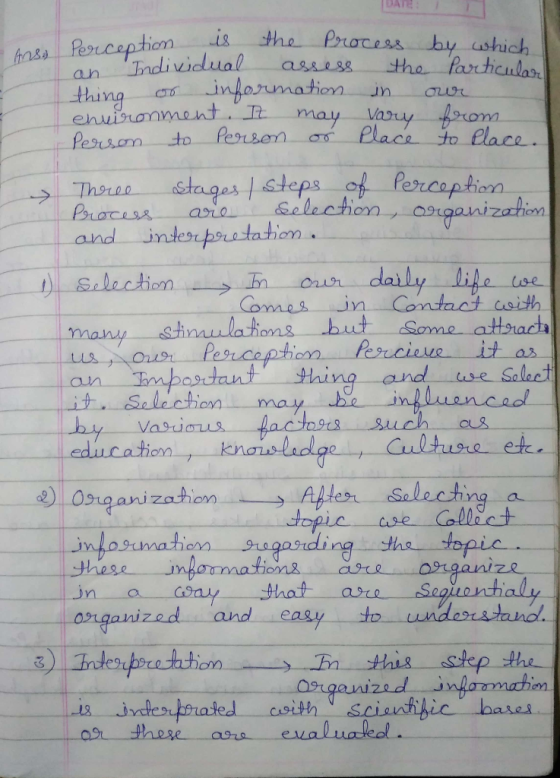 DATE: / /
Ans→ Perception is the Process by which
an Individual assess the Particular
thing or information in our
environment. It may vary from
Person to Person or Place to Place.
→ Three stages/steps of Perception
Process are Selection, organization
and interpretation.
1) Selection → In our daily life we
Comes in Contact with
many stimulations but some attracts
us, our Perception Percieve it as
an Important thing and we Select
it. Selection may be influenced
by various factors such as
education, knowledge, Culture etc.
2) Organization → After Selecting a
topic we Collect
information regarding the topic.
these informations are organize
in a way that are Sequentialy
organized and easy to understand.
3) Interpretation → In this step the
Organized information
is interprated with Scientific bases
or these are evaluated.